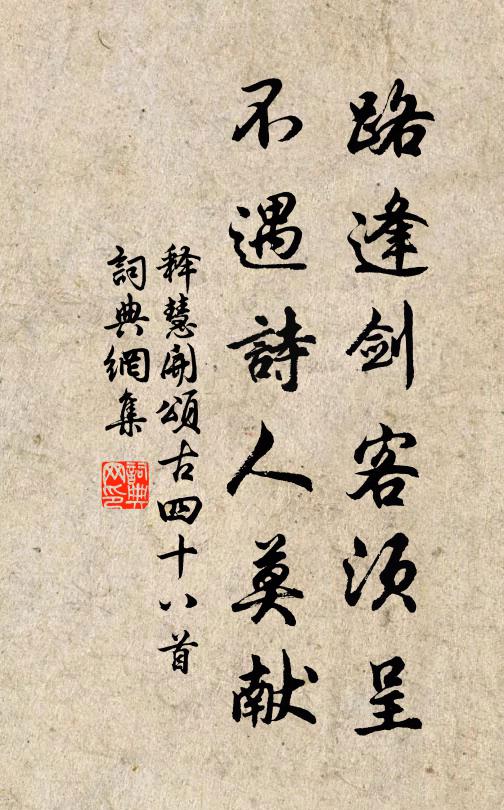 路逢剑客须呈
不遇詩人莫献
释慧開頌古四十八首
詞典網集
詞典网印